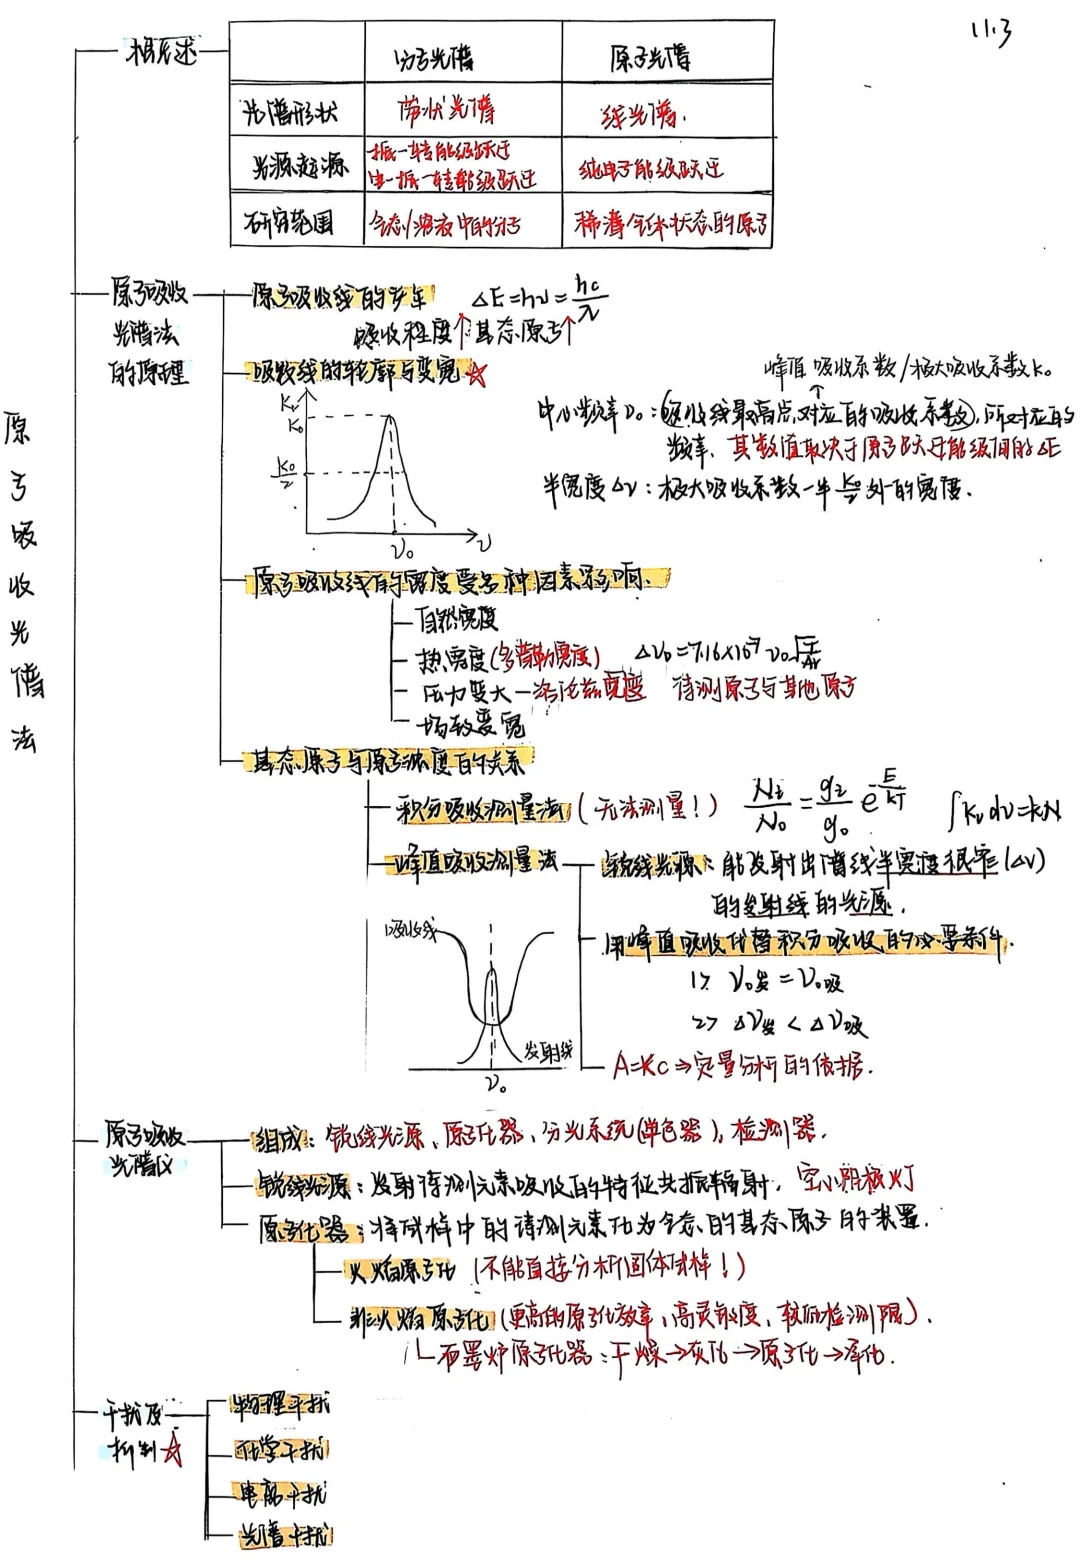 11.3
概述
分子光谱 原子光谱
光谱形状 带状光谱 线光谱.
光源起源 振-转能级跃迁 纯电子能级跃迁
电-振-转能级跃迁
研究范围 气态/溶液中的分子 稀薄气体状态的原子
原子吸收光谱法
原子吸收
光谱法
的原理
原子吸收线的产生 ΔE=hν=hc/λ
吸收程度↑基态原子↑
吸收线的轮廓与变宽☆
峰值吸收系数/极大吸收系数K₀
中心频率ν₀:(吸收线最高点对应的吸收系数),所对应的
频率.其数值取决于原子跃迁能级间的ΔE
半宽度Δν:极大吸收系数一半K₀/2处的宽度.
Kν
K₀
K₀/2
ν₀ ν
原子吸收线的宽度受多种因素影响.
自然宽度
热宽度(多普勒宽度) Δν_D=7.16×10⁻⁷ν₀√(T/Ar)
压力变大-洛伦兹宽度 待测原子与其他原子
场致变宽
基态原子与原子浓度的关系
积分吸收测量法(无法测量!) Ni/N₀=gi/g₀ e^(-E/kT) ∫Kν dν=kN
峰值吸收测量法
锐线光源:能发射出谱线半宽度很窄(Δν)
的发射线的光源.
用峰值吸收代替积分吸收的必要条件.
1> ν₀发=ν₀吸
2> Δν发<Δν吸
A=Kc⇒定量分析的依据.
吸收线
发射线
ν₀
原子吸收
光谱仪
组成:锐线光源、原子化器、分光系统(单色器)、检测器.
锐线光源:发射待测元素吸收的特征共振辐射.空心阴极灯
原子化器:将试样中的待测元素化为气态的基态原子的装置.
火焰原子化(不能直接分析固体试样!)
非火焰原子化(更高的原子化效率,高灵敏度、较低检测限).
石墨炉原子化器:干燥→灰化→原子化→净化.
干扰及
抑制☆
物理干扰
化学干扰
电离干扰
光谱干扰